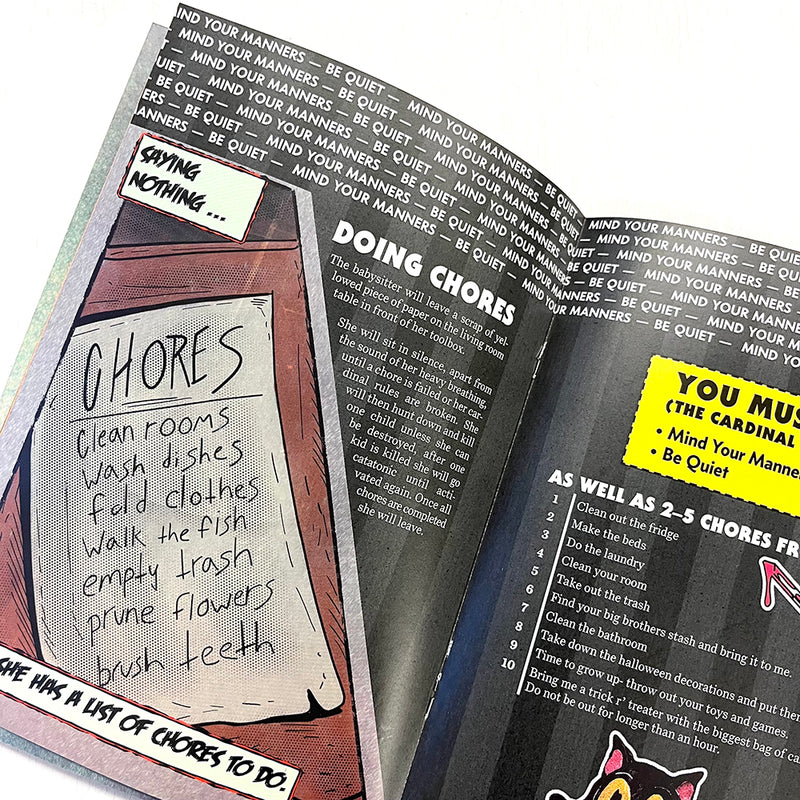 MIND YOUR MANNERS — BE QUIET — MIND YOUR MANNERS — BE QUIET —
MIND YOUR MANNERS — BE QUIET — MIND YOUR MANNERS — BE QUIET —
QUIET — MIND YOUR MANNERS — BE QUIET — MIND YOUR MANNERS — BE QUIET —
— BE QUIET — MIND YOUR MANNERS — BE QUIET — MIND YOUR MANNERS
MANNERS — BE QUIET — MIND YOUR MANNERS — BE QUIET — MIND YOUR MANNERS
— BE QUIET — MIND YOUR MANNERS — BE QUIET — MIND YOUR MANNERS
SAYING
NOTHING ...
CHORES
Clean rooms
wash dishes
fold clothes
walk the fish
empty trash
prune flowers
brush teeth
SHE HAS A LIST OF CHORES TO DO.
DOING CHORES
The babysitter will leave a scrap of yel-
lowed piece of paper on the living room
table in front of her toolbox.
She will sit in silence, apart from
the sound of her heavy breathing,
until a chore is failed or her car-
dinal rules are broken. She
will then hunt down and kill
one child unless she can
be destroyed, after one
kid is killed she will go
catatonic until acti-
vated again. Once all
chores are completed
she will leave.
MIND YOUR MANNERS — BE QUIET
MIND YOUR MANNERS — BE QUIET
MIND YOUR MANNERS — BE QUIET
MIND YOUR MANNERS — BE QUIET
MIND YOUR MANNERS — BE QUIET — MIND
— BE QUIET — MIND YOUR
YOU
(THE CARDINAL
• Mind Your
• Be Quiet
AS WELL AS 2–5 CHORES
1 Clean out the fridge
2 Make the beds
3 Do the laundry
4 Clean your room
5 Take out the trash
6 Find your big brothers stash and bring it to me.
7 Clean the bathroom
8 Take down the halloween decorations and put
9 Time to grow up- throw out your toys and games.
10 Bring me a trick r' treater with the biggest bag of
Do not be out for longer than an hour.